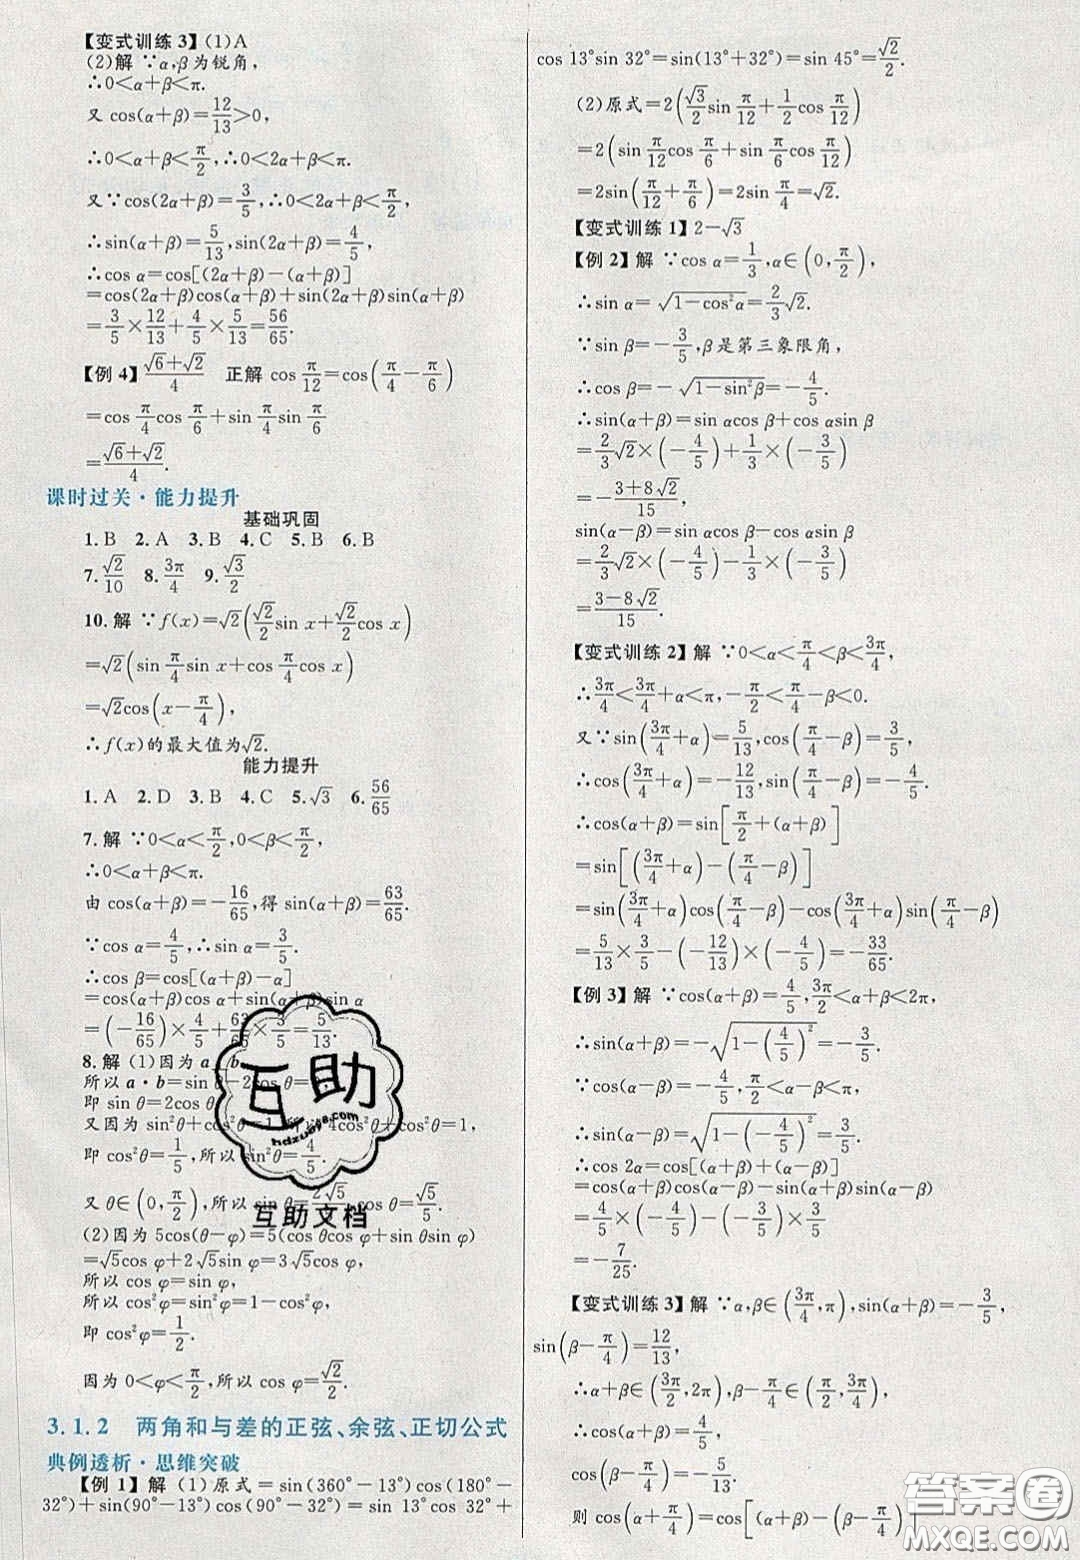 【变式训练3】(1)A
(2)解 ∵α,β为锐角,
∴0<α+β<π.
又 cos(α+β)=12/13>0,
∴0<α+β<π/2,∴0<2α+β<π.
又∵cos(2α+β)=3/5,∴0<2α+β<π/2,
∴sin(α+β)=5/13,sin(2α+β)=4/5,
∴cos α=cos[(2α+β)-(α+β)]
=cos(2α+β)cos(α+β)+sin(2α+β)sin(α+β)
=3/5×12/13+4/5×5/13=56/65.
【例4】(√6+√2)/4 正解 cos π/12=cos(π/4-π/6)
=cos π/4 cos π/6+sin π/4 sin π/6
=(√6+√2)/4.
课时过关·能力提升
基础巩固
1.B 2.A 3.B 4.C 5.B 6.B
7.√2/10 8.3π/4 9.√3/2
10.解 ∵f(x)=√2(√2/2 sin x+√2/2 cos x)
=√2(sin π/4 sin x+cos π/4 cos x)
=√2cos(x-π/4),
∴f(x)的最大值为√2.
能力提升
1.A 2.D 3.B 4.C 5.√3 6.56/65
7.解 ∵0<α<π/2,0<β<π/2,
∴0<α+β<π.
由 cos(α+β)=-16/65,得 sin(α+β)=63/65.
∵cos α=4/5,∴sin α=3/5.
∴cos β=cos[(α+β)-α]
=cos(α+β)cos α+sin(α+β)sin α
=(-16/65)×4/5+63/65×3/5=5/13.
8.解 (1)因为 a b
所以 a·b=sin θ-2cos θ=0
即 sin θ=2cos θ
又因为 sin²θ+cos²θ 4cos²θ+cos²θ=1,
即 cos²θ=1/5,所以 sin²θ=4/5.
又 θ∈(0,π/2),所以 sin θ=2√5/5, cos θ=√5/5.
(2)因为 5cos(θ-φ)=5(cos θcos φ+sin θsin φ)
=√5cos φ+2√5sin φ=3√5cos φ,
所以 cos φ=sin φ,
所以 cos²φ=sin²φ=1-cos²φ,
即 cos²φ=1/2.
因为 0<φ<π/2,所以 cos φ=√2/2.
3.1.2 两角和与差的正弦、余弦、正切公式
典例透析·思维突破
【例1】解 (1)原式=sin(360°-13°)cos(180°-
32°)+sin(90°-13°)cos(90°-32°)=sin 13°cos 32°+
cos 13°sin 32°=sin(13°+32°)=sin 45°=√2/2.
(2)原式=2(√3/2 sin π/12+1/2 cos π/12)
=2(sin π/12 cos π/6+sin π/6 cos π/12)
=2sin(π/12+π/6)=2sin π/4=√2.
【变式训练1】2-√3
【例2】解 ∵cos α=1/3,α∈(0,π/2),
∴sin α=√(1-cos²α)=2/3√2.
∵sin β=-3/5,β是第三象限角,
∴cos β=-√(1-sin²β)=-4/5.
∴sin(α+β)=sin αcos β+cos αsin β
=2/3√2×(-4/5)+1/3×(-3/5)
=-(3+8√2)/15.
sin(α-β)=sin αcos β-cos αsin β
=2/3√2×(-4/5)-1/3×(-3/5)
=(3-8√2)/15.
【变式训练2】解 ∵0<α<π/4<β<3π/4,
∴3π/4<3π/4+α<π,-π/2<π/4-β<0.
又∵sin(3π/4+α)=5/13,cos(π/4-β)=3/5,
∴cos(3π/4+α)=-12/13,sin(π/4-β)=-4/5.
∴cos(α+β)=sin[π/2+(α+β)]
=sin[(3π/4+α)-(π/4-β)]
=sin(3π/4+α)cos(π/4-β)-cos(3π/4+α)sin(π/4-β)
=5/13×3/5-(-12/13)×(-4/5)=-33/65.
【例3】解 ∵cos(α+β)=4/5,3π/2<α+β<2π,
∴sin(α+β)=-√(1-(4/5)²)=-3/5.
∵cos(α-β)=-4/5,π/2<α-β<π,
∴sin(α-β)=√(1-(-4/5)²)=3/5.
∴cos 2α=cos[(α+β)+(α-β)]
=cos(α+β)cos(α-β)-sin(α+β)sin(α-β)
=4/5×(-4/5)-(-3/5)×3/5
=-7/25.
【变式训练3】解 ∵α,β∈(3π/4,π),sin(α+β)=-3/5,
sin(β-π/4)=12/13,
∴α+β∈(3π/2,2π),β-π/4∈(π/2,3π/4),
∴cos(α+β)=4/5,
cos(β-π/4)=-5/13.
则 cos(α+π/4)=cos[(α+β)-(β-π/4)]
互助
hdzuoye8.com
互助文档
答案圈
MXQE.COM